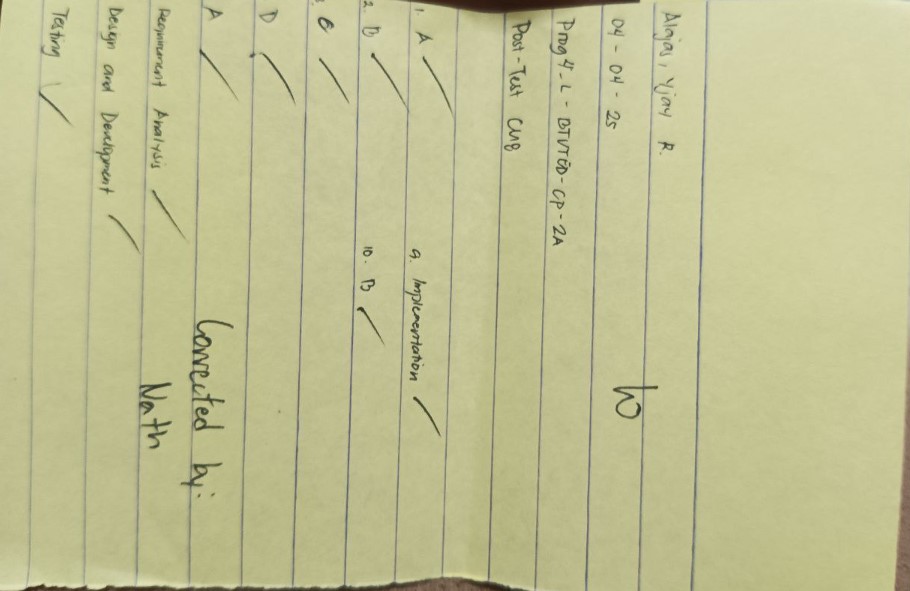 Alajas, Yjay R.
10
04 - 04 - 25
Prog4-L - BTVTED-CP-2A
Post-Test CU8
1. A
2. B
3. C
D
A
Requirement Analysis
Design and Development
Testing
9. Implementation
10. B
Corrected by:
Nath